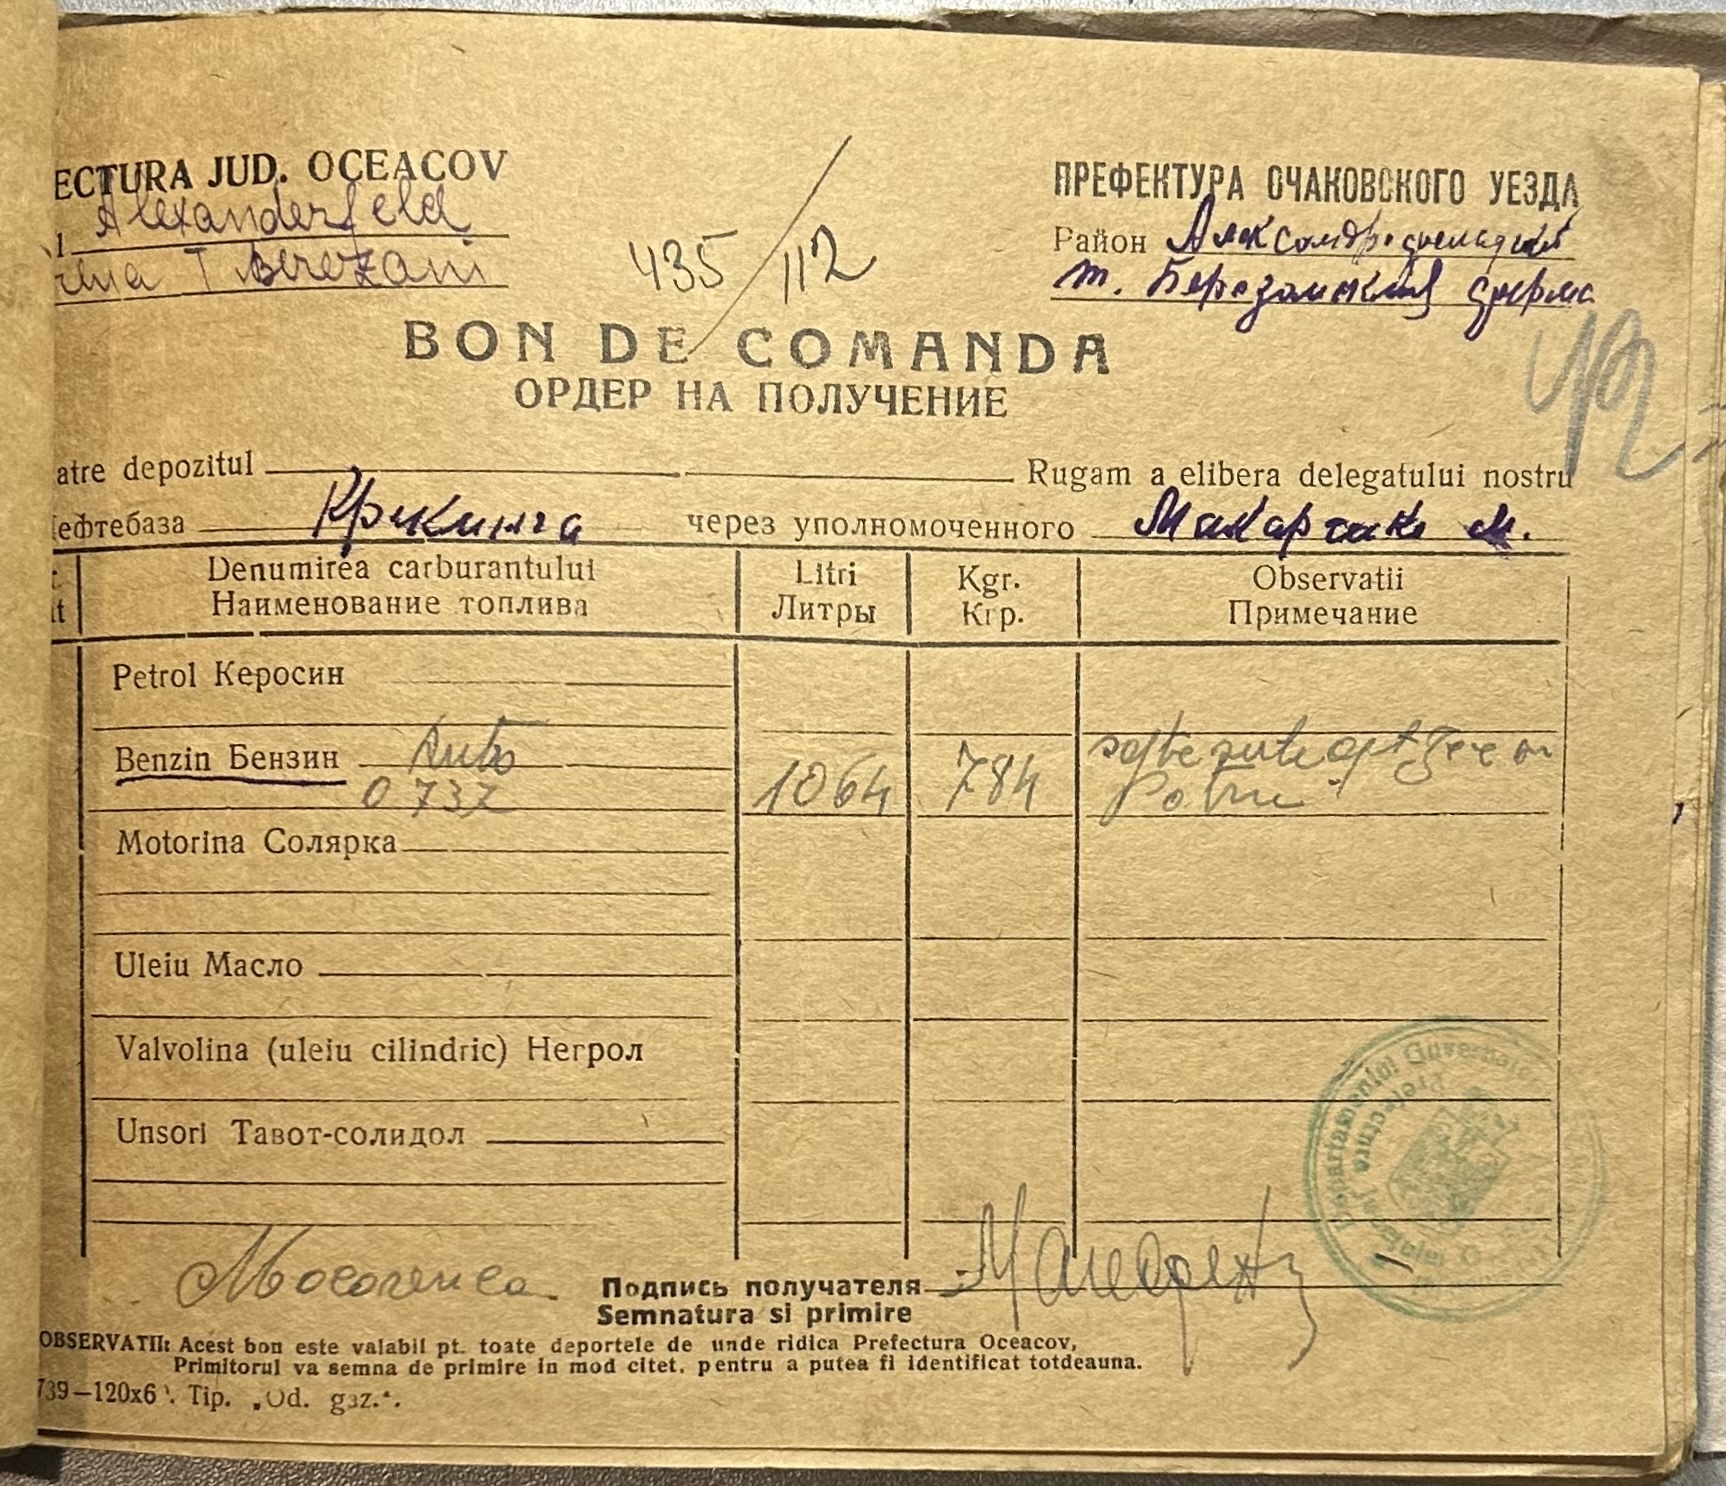 ECTURA JUD. OCEACOV
Alexanderfeld
T Berezani
435/112
ПРЕФЕКТУРА ОЧАКОВСКОГО УЕЗДА
Район Александрфельдский
т. Березанский ферма
BON DE COMANDA
ОРДЕР НА ПОЛУЧЕНИЕ
atre depozitul Rugam a elibera delegatului nostru
ефтебаза Крекинга через уполномоченного М.
Denumirea carburantului Litri Kgr. Observatii
Наименование топлива Литры Кгр. Примечание
Petrol Керосин
Benzin Бензин Auto
0 737 1064 784 șapte sute opt zeci
patru
Motorina Солярка
Uleiu Масло
Valvolina (uleiu cilindric) Негрол
Unsori Тавот-солидол
Departamentul Guvern
Prefectura
Подпись получателя
Semnatura si primire
OBSERVATII: Acest bon este valabil pt. toate deportele de unde ridica Prefectura Oceacov,
Primitorul va semna de primire in mod citet, pentru a putea fi identificat totdeauna.
739—120x6 . Tip. „Od. gaz.“.